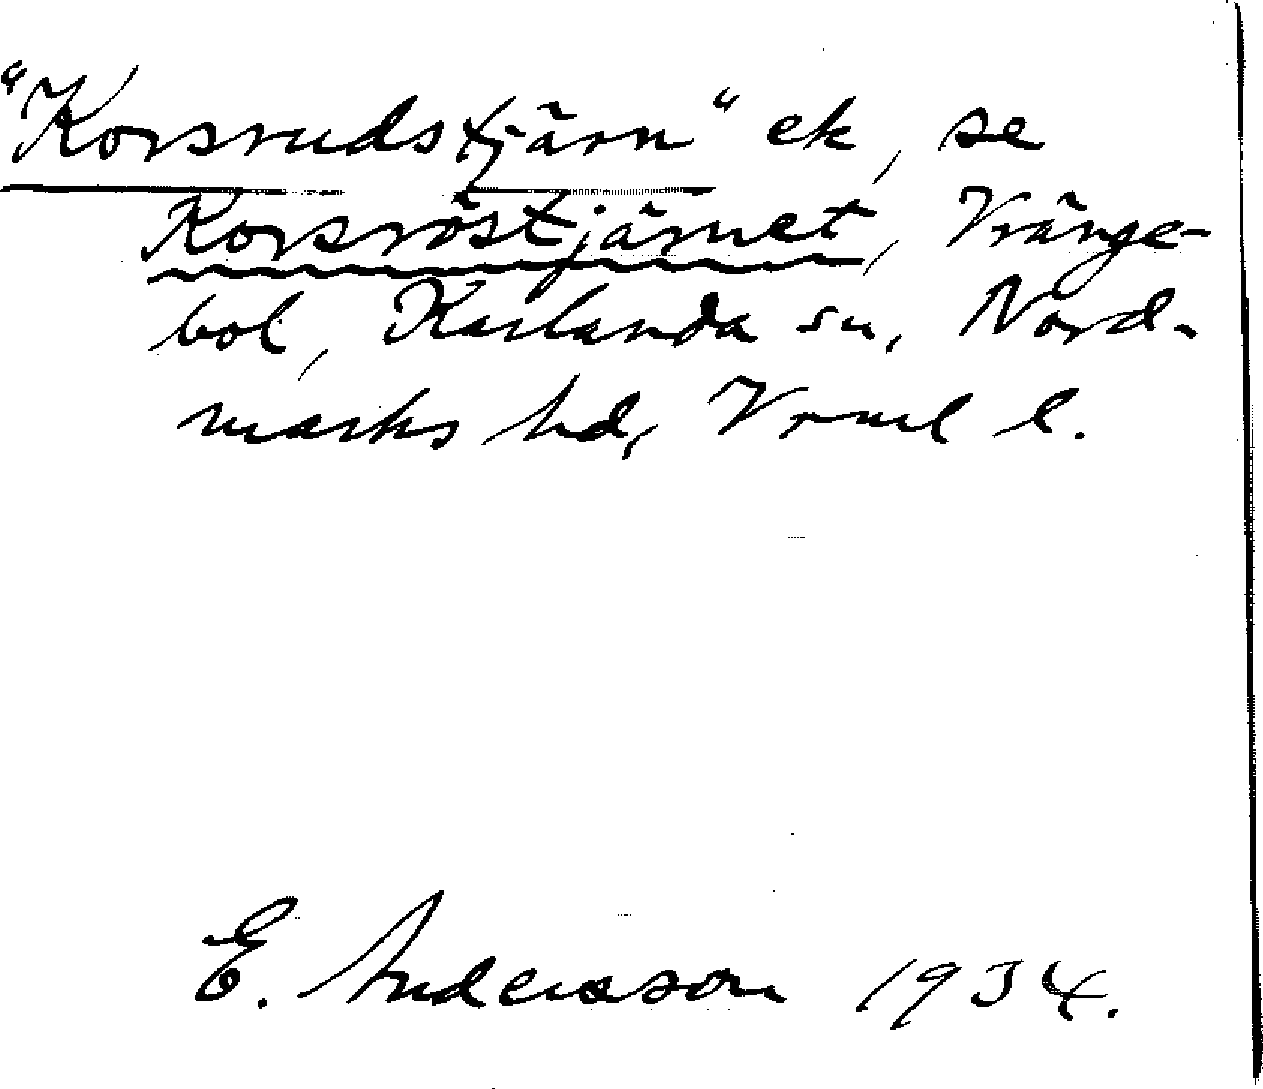 "Korsrudstjärn" ek, se
Korsröstjärnet, Vränge-
bol, Karlanda sn, Nord-
marks hd, Vrml l.
E. Andersson 1934.